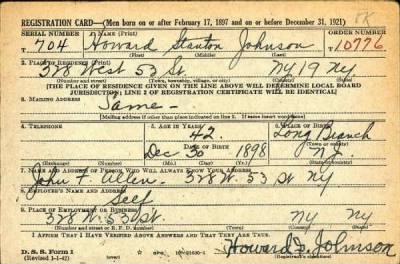 REGISTRATION CARD—(Men born on or after February 17, 1897 and on or before December 31, 1921)
SERIAL NUMBER 1. NAME (Print) ORDER NUMBER
T 704 Howard Stanton Johnson 10776
2. PLACE OF RESIDENCE (Print)
328 West 53 St. NY 19 NY
(Number and street) (Town, township, village, or city) (County) (State)
[THE PLACE OF RESIDENCE GIVEN ON THE LINE ABOVE WILL DETERMINE LOCAL BOARD
JURISDICTION; LINE 2 OF REGISTRATION CERTIFICATE WILL BE IDENTICAL]
3. MAILING ADDRESS
Same -
[Mailing address if other than place indicated on line 2. If same insert word same]
4. TELEPHONE 5. AGE IN YEARS 6. PLACE OF BIRTH
42 Long Branch
DATE OF BIRTH
Dec 30 1898 N.J.
(Exchange) (Number) (Mo.) (Day) (Yr.) (State or country)
7. NAME AND ADDRESS OF PERSON WHO WILL ALWAYS KNOW YOUR ADDRESS
John F. Allen - 328 W. 53 St NY
8. EMPLOYER'S NAME AND ADDRESS
Self
9. PLACE OF EMPLOYMENT OR BUSINESS
328 W. 53 St. NY NY
(Number and street or R. F. D. number) (Town) (County) (State)
I AFFIRM THAT I HAVE VERIFIED ABOVE ANSWERS AND THAT THEY ARE TRUE.
D. S. S. Form 1
(Revised 1-1-42) (over)
Howard S. Johnson